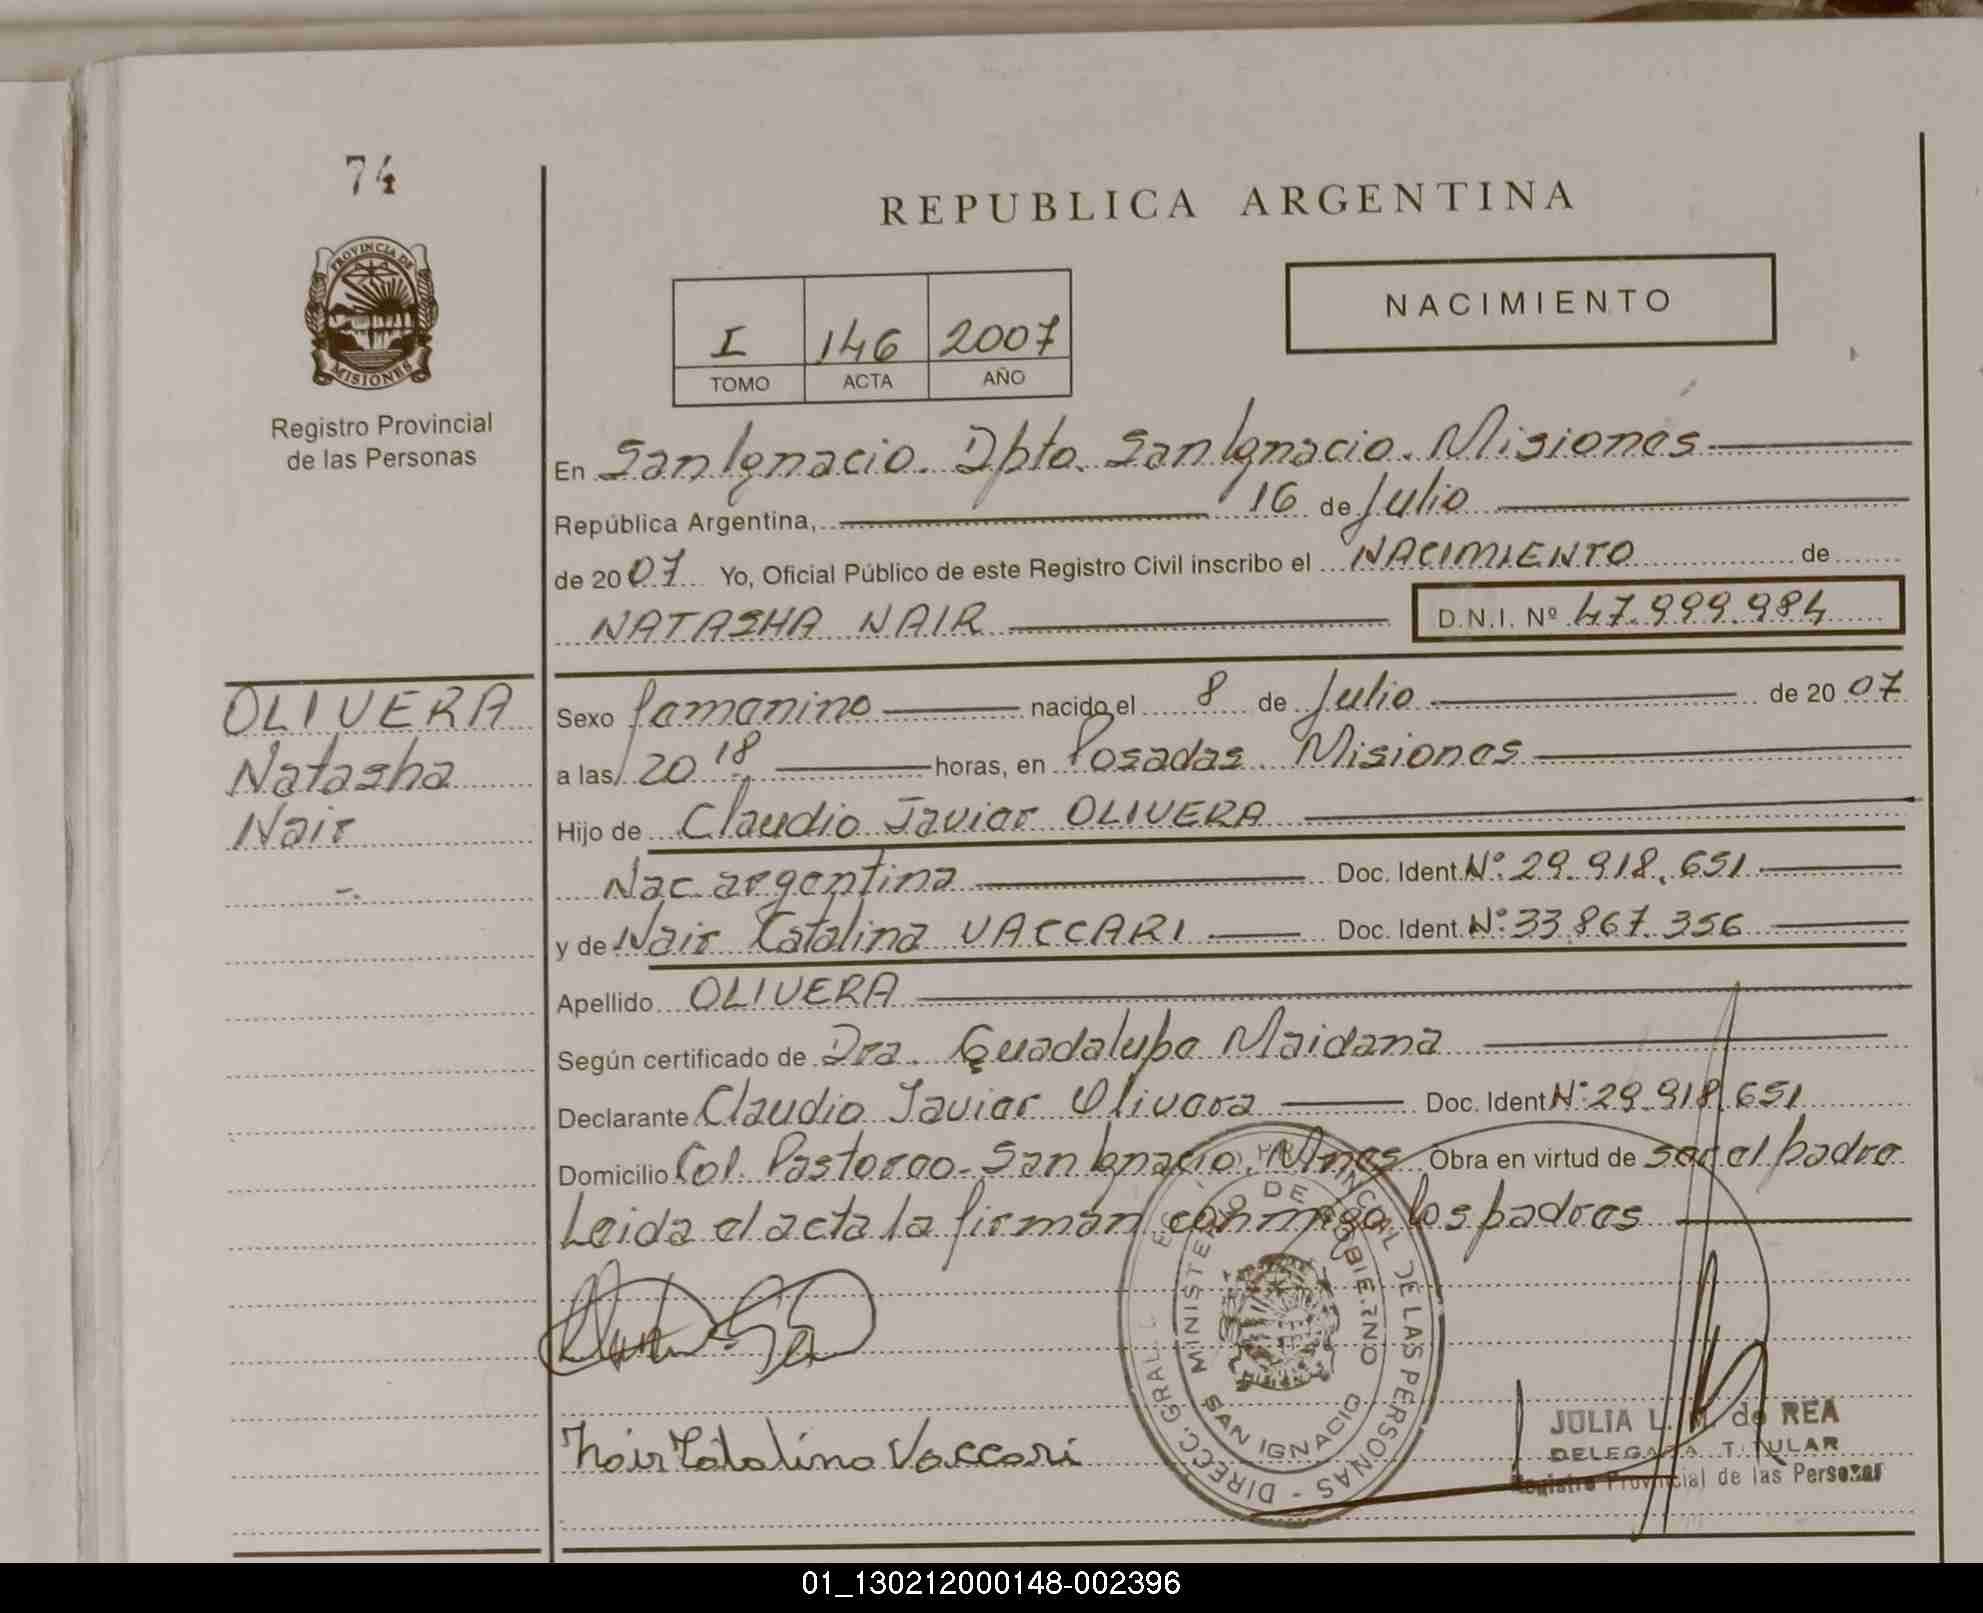 74
REPUBLICA ARGENTINA
PROVINCIA DE
MISIONES
Registro Provincial
de las Personas
NACIMIENTO
I 146 2007
TOMO ACTA AÑO
En San Ignacio. Dpto. San Ignacio. Misiones
República Argentina, 16 de Julio
de 2007 Yo, Oficial Público de este Registro Civil inscribo el NACIMIENTO de
NATASHA NAIR D.N.I. Nº 47.999.984
OLIVERA
Natasha
Nair
Sexo femenino nacido el 8 de Julio de 2007
a las 20 18 horas, en Posadas Misiones
Hijo de Claudio Javier OLIVERA
Nac. argentina Doc. Ident. Nº: 29.918.651
y de Nair Catalina VACCARI Doc. Ident. Nº: 33.867.356
Apellido OLIVERA
Según certificado de Dra. Guadalupe Maidana
Declarante Claudio Javier Olivera Doc. Ident Nº: 29.918.651
Domicilio Col. Pastoreo - San Ignacio. Mnes Obra en virtud de ser el padre
Leida el acta la firman conmigo los padres
Nair Catalina Vaccari
MINISTERIO DE GOBIERNO
SAN IGNACIO
DIRECC. GRAL. PROVINCIAL DE LAS PERSONAS
JULIA L. de REA
DELEGADA TITULAR
Registro Provincial de las Personas
01_130212000148-002396